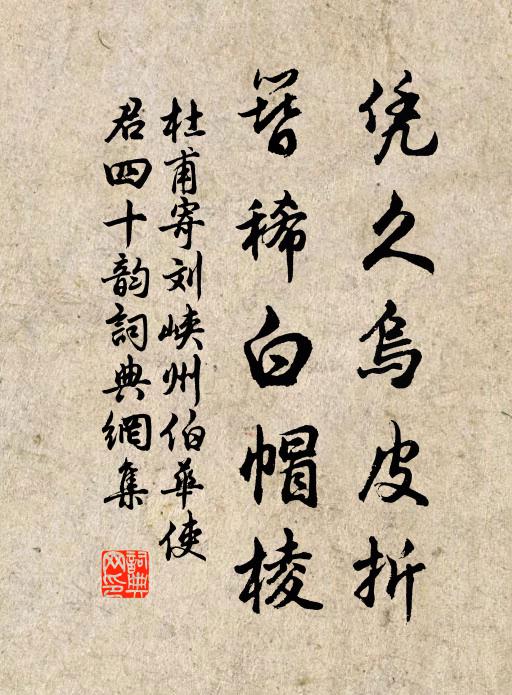 凭久乌皮折
簪稀白帽棱
杜甫寄刘峡州伯华使
君四十韵詞典網集
詞典网印